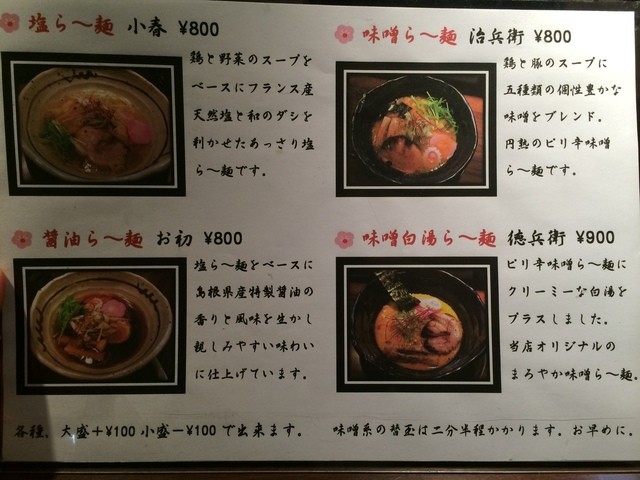 塩ら〜麺 小春 ¥800
鶏と野菜のスープを
ベースにフランス産
天然塩と和のダシを
利かせたあっさり塩
ら〜麺です。
味噌ら〜麺 治兵衛 ¥800
鶏と豚のスープに
五種類の個性豊かな
味噌をブレンド。
円熟のピリ辛味噌
ら〜麺です。
醤油ら〜麺 お初 ¥800
塩ら〜麺をベースに
島根県産特製醤油の
香りと風味を生かし
親しみやすい味わい
に仕上げています。
味噌白湯ら〜麺 徳兵衛 ¥900
ピリ辛味噌ら〜麺に
クリーミーな白湯を
プラスしました。
当店オリジナルの
まろやか味噌ら〜麺。
各種、大盛+¥100 小盛−¥100 で出来ます。
味噌系の替玉は二分半程かかります。お早めに。